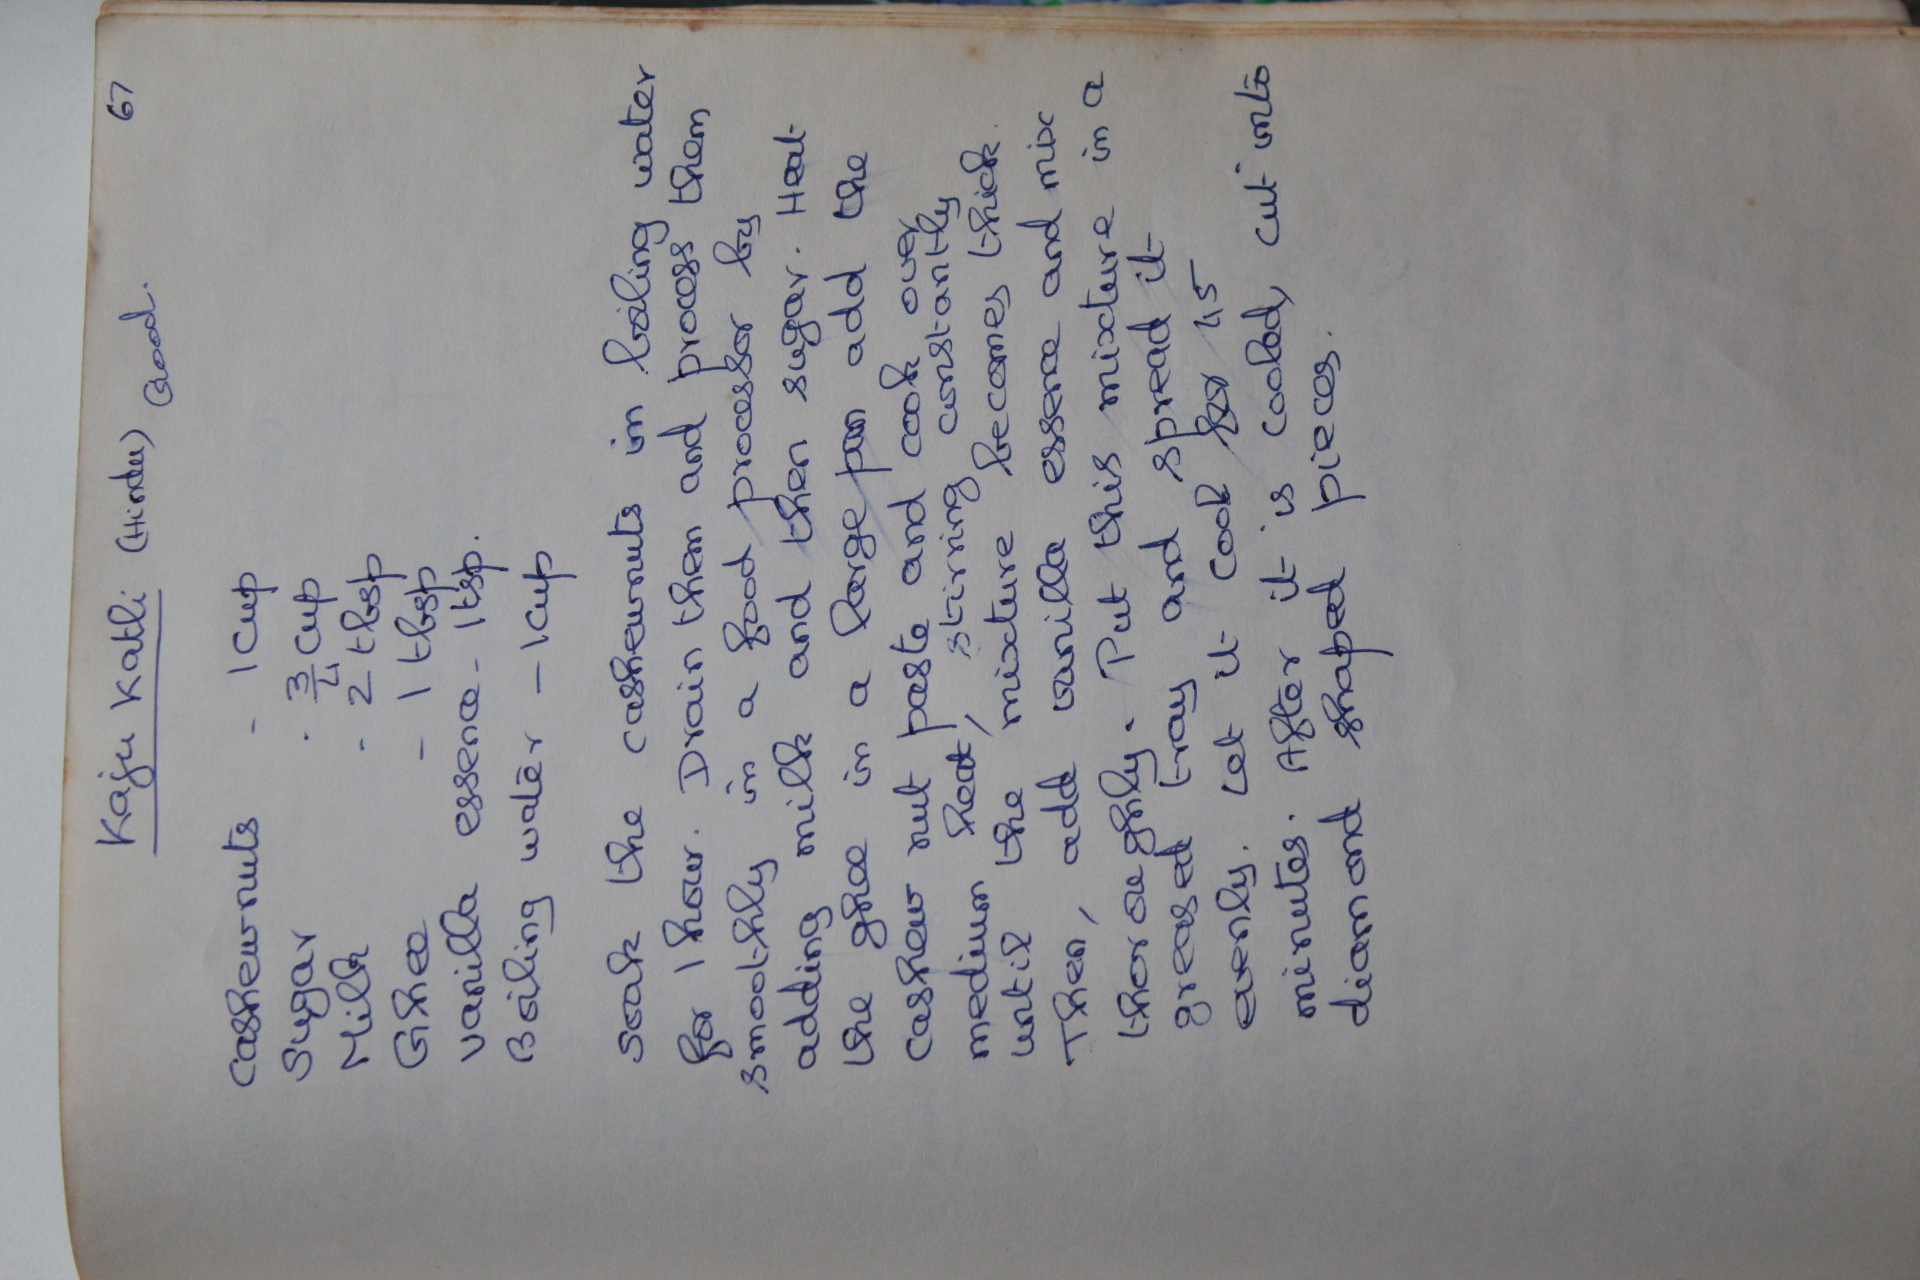 67
Kaju Katli (Hindu)
Good.
Cashewnuts - 1 cup
Sugar - 3/4 cup
Milk - 2 tbsp
Ghee - 1 tbsp
Vanilla essence - 1 tsp.
Boiling water - 1 cup
Soak the cashewnuts in boiling water
for 1 hour. Drain them and process them
smoothly in a food processor by
adding milk and then sugar. Heat
the ghee in a large pan add the
cashew nut paste and cook over
medium heat, stirring constantly
until the mixture becomes thick.
Then, add vanilla essence and mix
thoroughly. Put this mixture in a
greased tray and spread it
evenly. Let it cool for 45
minutes. After it is cooled, cut into
diamond shaped pieces.